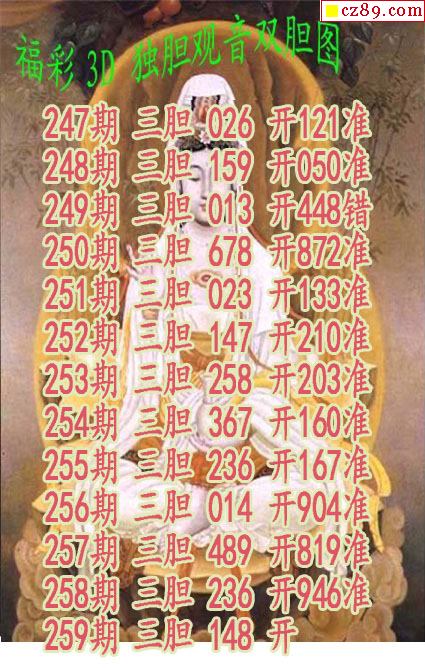 cz89.com
福彩 3D 独胆观音双胆图
247期 三胆 026 开121准
248期 三胆 159 开050准
249期 三胆 013 开448错
250期 三胆 678 开872准
251期 三胆 023 开133准
252期 三胆 147 开210准
253期 三胆 258 开203准
254期 三胆 367 开160准
255期 三胆 236 开167准
256期 三胆 014 开904准
257期 三胆 489 开819准
258期 三胆 236 开946准
259期 三胆 148 开